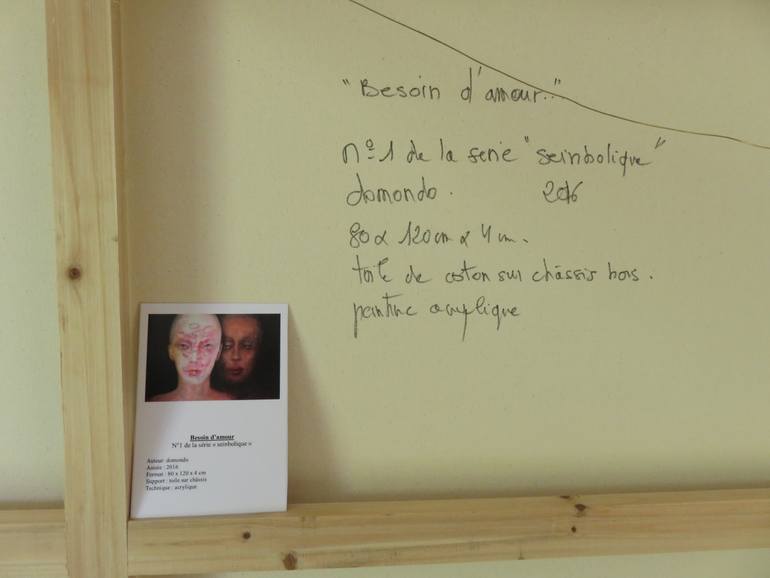 "Besoin d'amour..."
nº1 de la serie "seinbolique"
domondo. 2016
80 x 120 cm x 4 cm.
toile de coton sur châssis bois.
peinture acrylique
Besoin d'amour
N°1 de la série « seinbolique »
Auteur: domondo
Année : 2016
Format : 80 x 120 x 4 cm
Support : toile sur châssis
Technique : acrylique